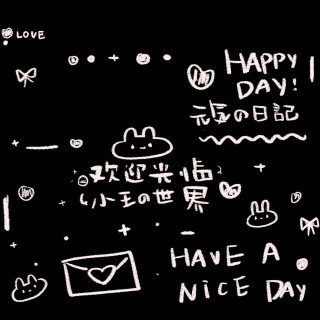 LOVE
HAPPY
DAY!
元気の日記
欢迎光临
小王の世界
HAVE A
NiCE DAY